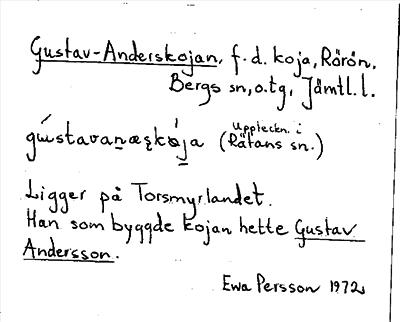 Gustav-Anderskojan, f.d. koja, Rörön,
Bergs sn, o.tg, Jämtl.l.
(Uppteckn. i
Rätans sn.)
Ligger på Torsmyrlandet.
Han som byggde kojan hette Gustav
Andersson.
Ewa Persson 1972